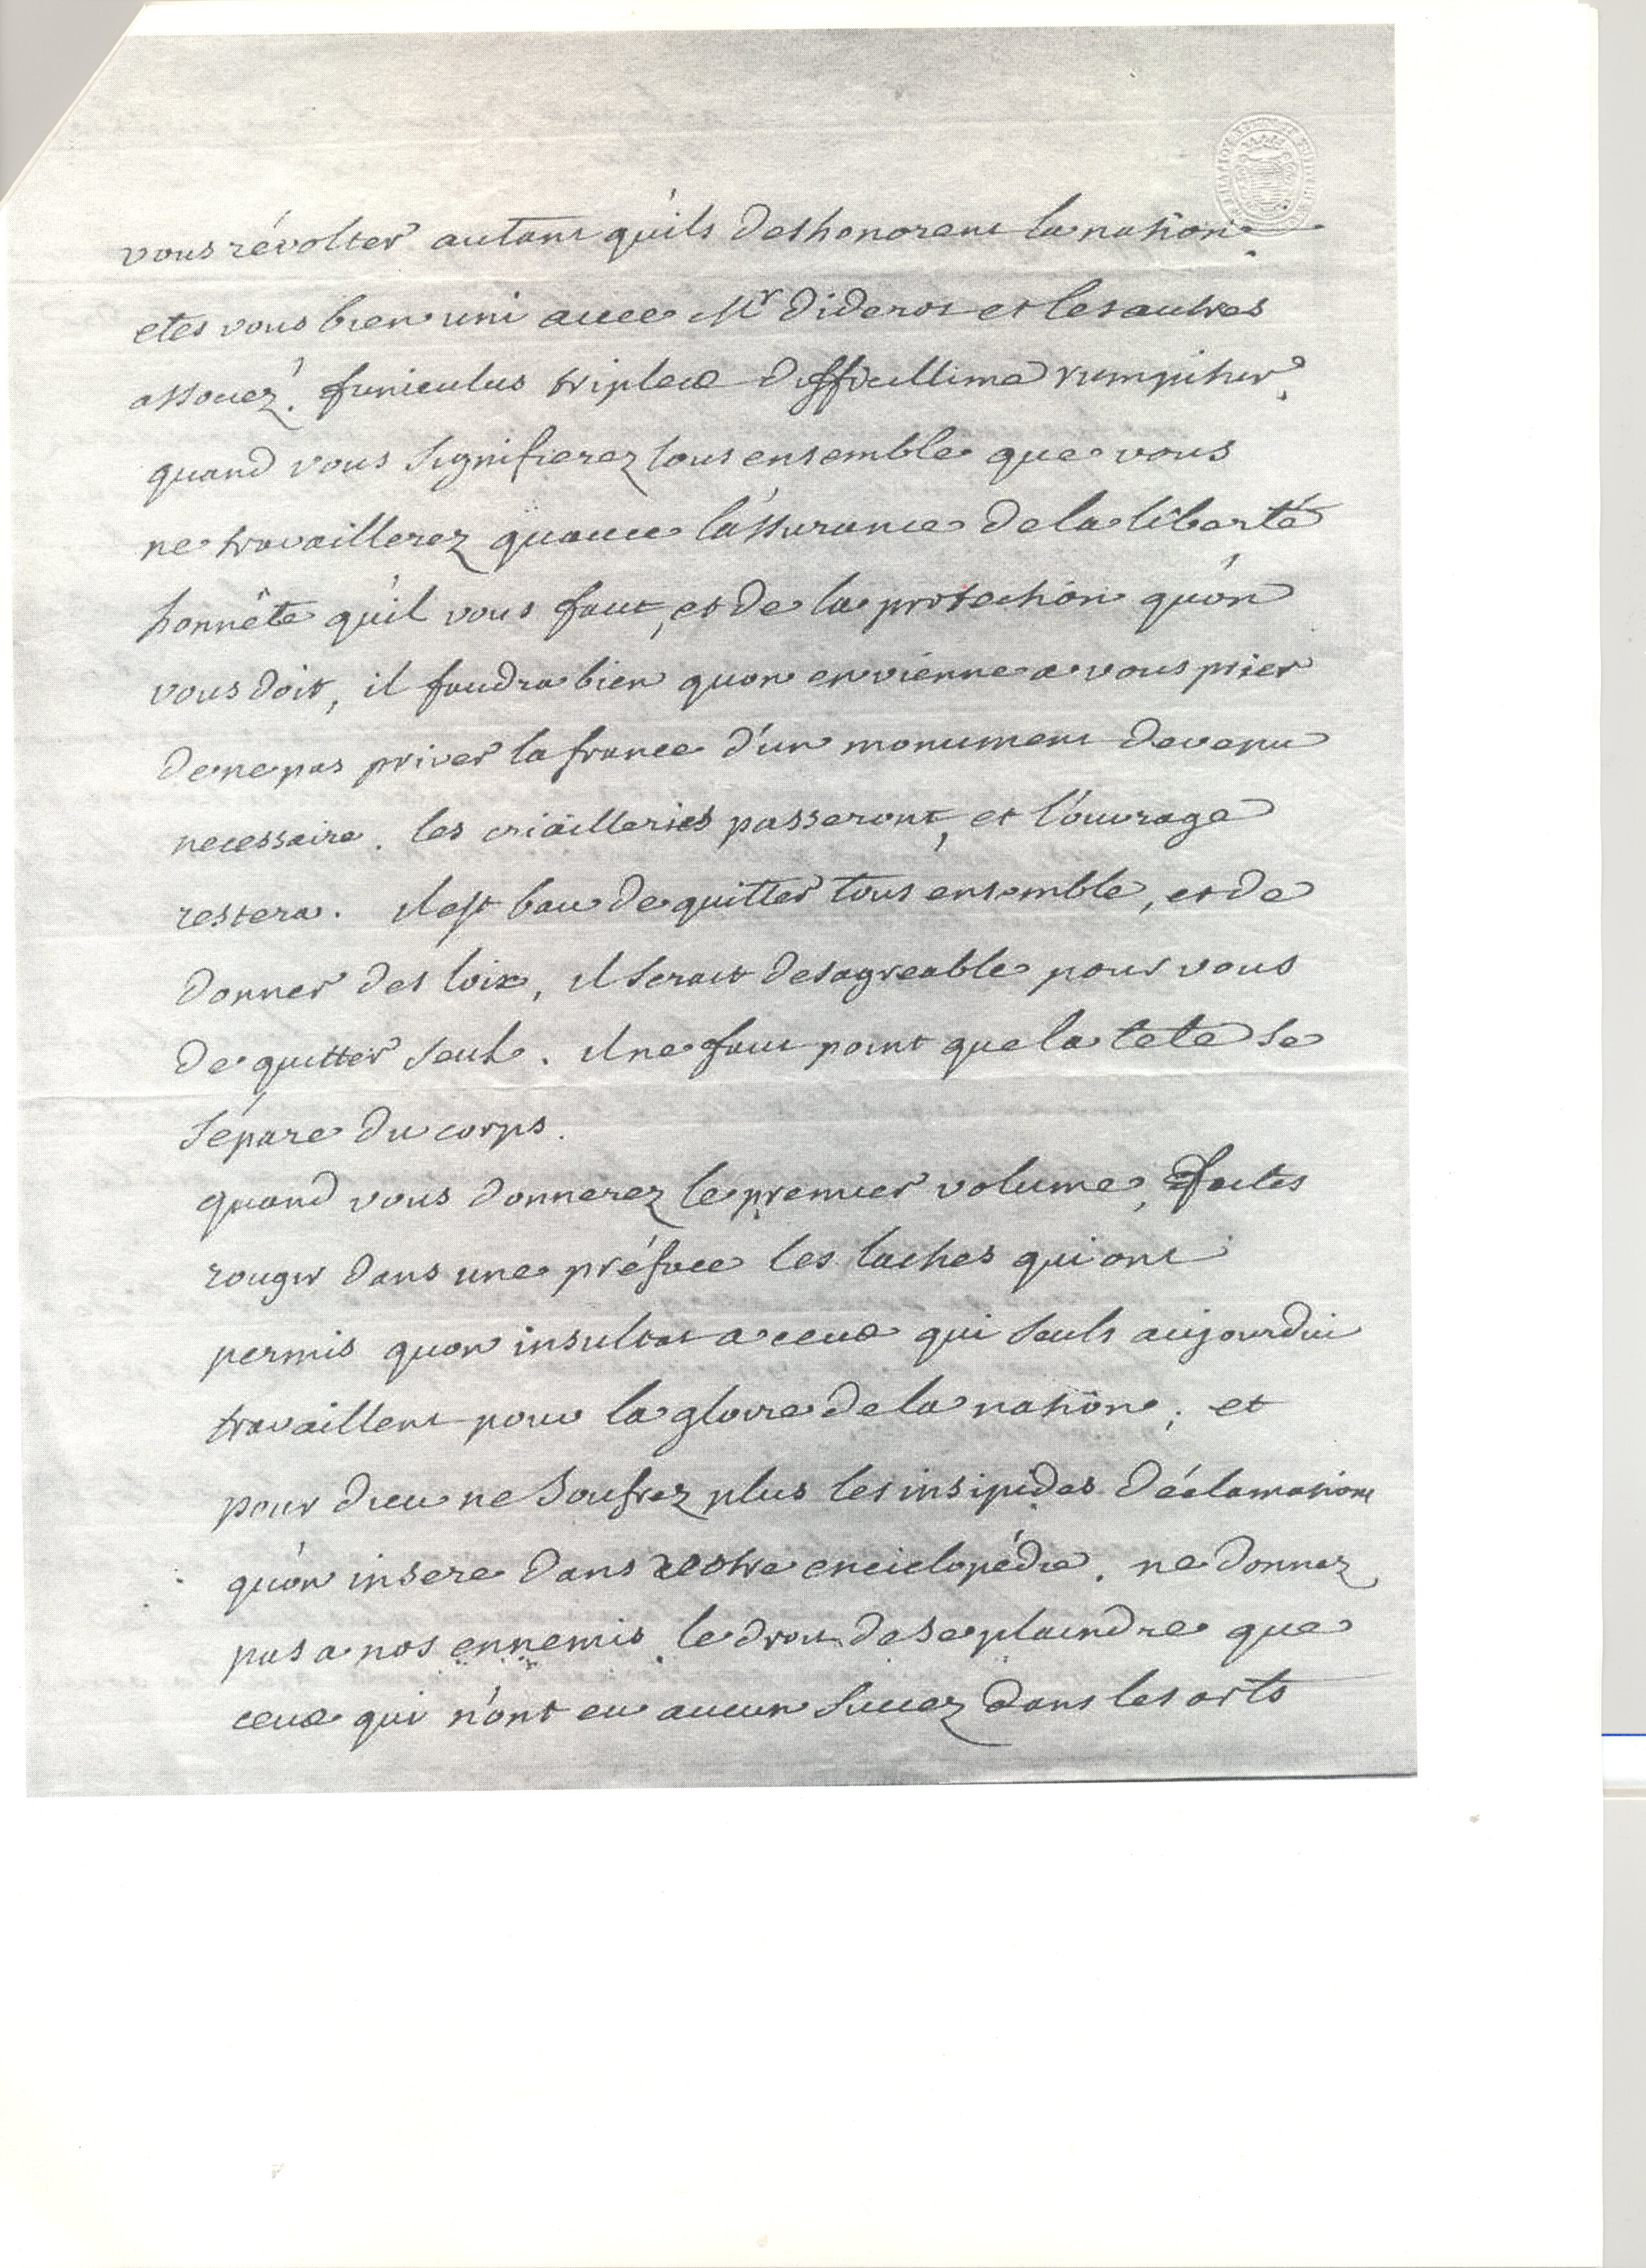 vous révolter autant qu'ils deshonorent la nation.
etes vous bien uni avec Mr Diderot et les autres
associez? funiculus triplex difficillime rumpitur.
quand vous signifierez tous ensemble que vous
ne travaillerez quavec l'assurance de la liberté
honnête qu'il vous faut, et de la protection qu'on
vous doit, il faudra bien quon en vienne a vous prier
de ne pas priver la france d'un monument devenu
necessaire. les criailleries passeront, et l'ouvrage
restera. il est bau de quitter tous ensemble, et de
donner des loix, il serait desagreable pour vous
de quitter seul. il ne faut point que la tete se
sépare du corps.
quand vous donnerez le premier volume, faites
rougir dans une préface les laches qui ont
permis quon insultat a ceux qui seuls aujourdui
travaillent pour la gloire de la nation; et
pour dieu ne soufrez plus les insipides déclamations
qu'on insere dans vostre enciclopédie. ne donnez
pas a nos ennemis le droit de se plaindre que
ceux qui n'ont eu aucun succez dans les arts